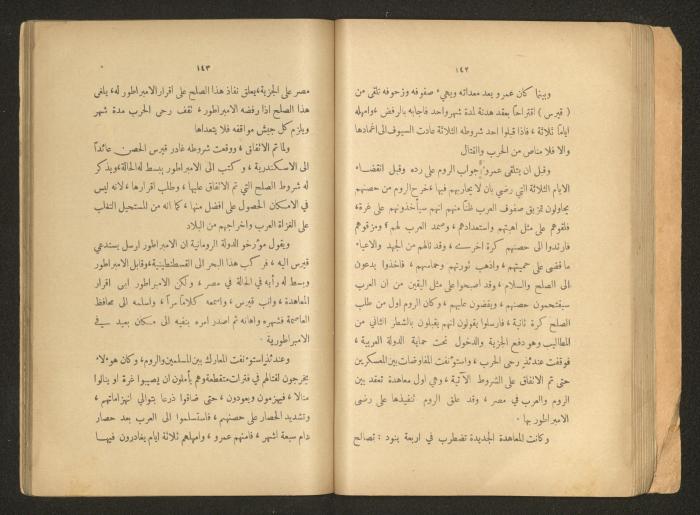 ١٤٢
وبينما كان عمرو يعد معداته ويهيء صفوفه وزحوفه تلقى من
( قيرس ) اقتراحاً بعقد هدنة لمدة شهر واحد فاجابه بالرفض ، وامهله
اياماً ثلاثة ، فاذا قبلوا احد شروطه الثلاثة عادت السيوف الى اغمادها
والا فلا مناص من الحرب والقتال
وقبل ان يتلقى عمرو جواب الروم على رده وقبل انقضاء
الايام الثلاثة التي رضي بان لا يحاربهم فيها ، خرج الروم من حصنهم
يحاولون تمزيق صفوف العرب ظناً منهم انهم سيأخذونهم على غرة ،
فلقوهم على مثل اهبتهم واستعدادهم ، وصمد العرب لهم ، ومزقوهم
فارتدوا الى حصنهم كرة اخرى ، وقد نالهم من الجهد والاعياء
ما قضى على حميتهم ، واذهب ثورتهم وحماسهم ، فاخذوا يدعون
الى الصلح والسلام ، وقد اصبحوا على مثل اليقين من ان العرب
سيقتحمون حصنهم ، ويفضون عليهم ، وكان الروم اول من طلب
الصلح كرة ثانية ، فارسلوا يقولون انهم يقبلون بالشطر الثاني من
المطاليب وهو دفع الجزية والدخول تحت حماية الدولة العربية ،
فوقفت عندئذ رحى الحرب ، واستؤنفت المفاوضات بين المعسكرين
حتى تم الاتفاق على الشروط الآتية ، وهي اول معاهدة تعقد بين
الروم والعرب في مصر ، وقد علق الروم تنفيذها على رضى
الامبراطور بها .
وكانت المعاهدة الجديدة تضطرب في اربعة بنود : تصالح
١٤٣
مصر على الجزية ، يعلق نفاذ هذا الصلح على اقرار الامبراطور له ، يلغى
هذا الصلح اذا رفضه الامبراطور ، تقف رحى الحرب مدة شهر
ويلزم كل جيش مواقفه فلا يتعداها
ولما تم الاتفاق ، ووقعت شروطه غادر قيرس الحصن عائداً
الى الاسكندرية ، وكتب الى الامبراطور يبسط له الحالة ، ويذكر
له شروط الصلح التي تم الاتفاق عليها ، وطلب اقرارها ، لانه ليس
في الامكان الحصول على افضل منها ، كما انه من المستحيل التغلب
على الغزاة العرب واخراجهم من البلاد
ويقول مؤرخو الدولة الرومانية ان الامبراطور ارسل يستدعي
قيرس اليه ، فركب هذا البحر الى القسطنطينية ، وقابل الامبراطور
وبسط له رأيه في الحالة في مصر ، ولكن الامبراطور ابى اقرار
المعاهدة ، وانب قيرس ، واسمعه كلاماً مراً ، واسلمه الى محافظ
العاصمة فشهره واهانه ثم اصدر امره بنفيه الى مكان بعيد في
الامبراطورية .
وعندئذ استؤنفت المعارك بين المسلمين والروم ، وكان هؤلاء
يخرجون لقتالهم في فترات متقطعة وهم يأملون ان يصيبوا غرة او ينالوا
منالا ، فيهزمون ويعودون ، حتى ضاقوا ذرعا بتوالي انهزاماتهم ،
وتشديد الحصار على حصنهم ، فاستسلموا الى العرب بعد حصار
دام سبعة اشهر ، فامنهم عمرو ، وامهلهم ثلاثة ايام يغادرون فيها